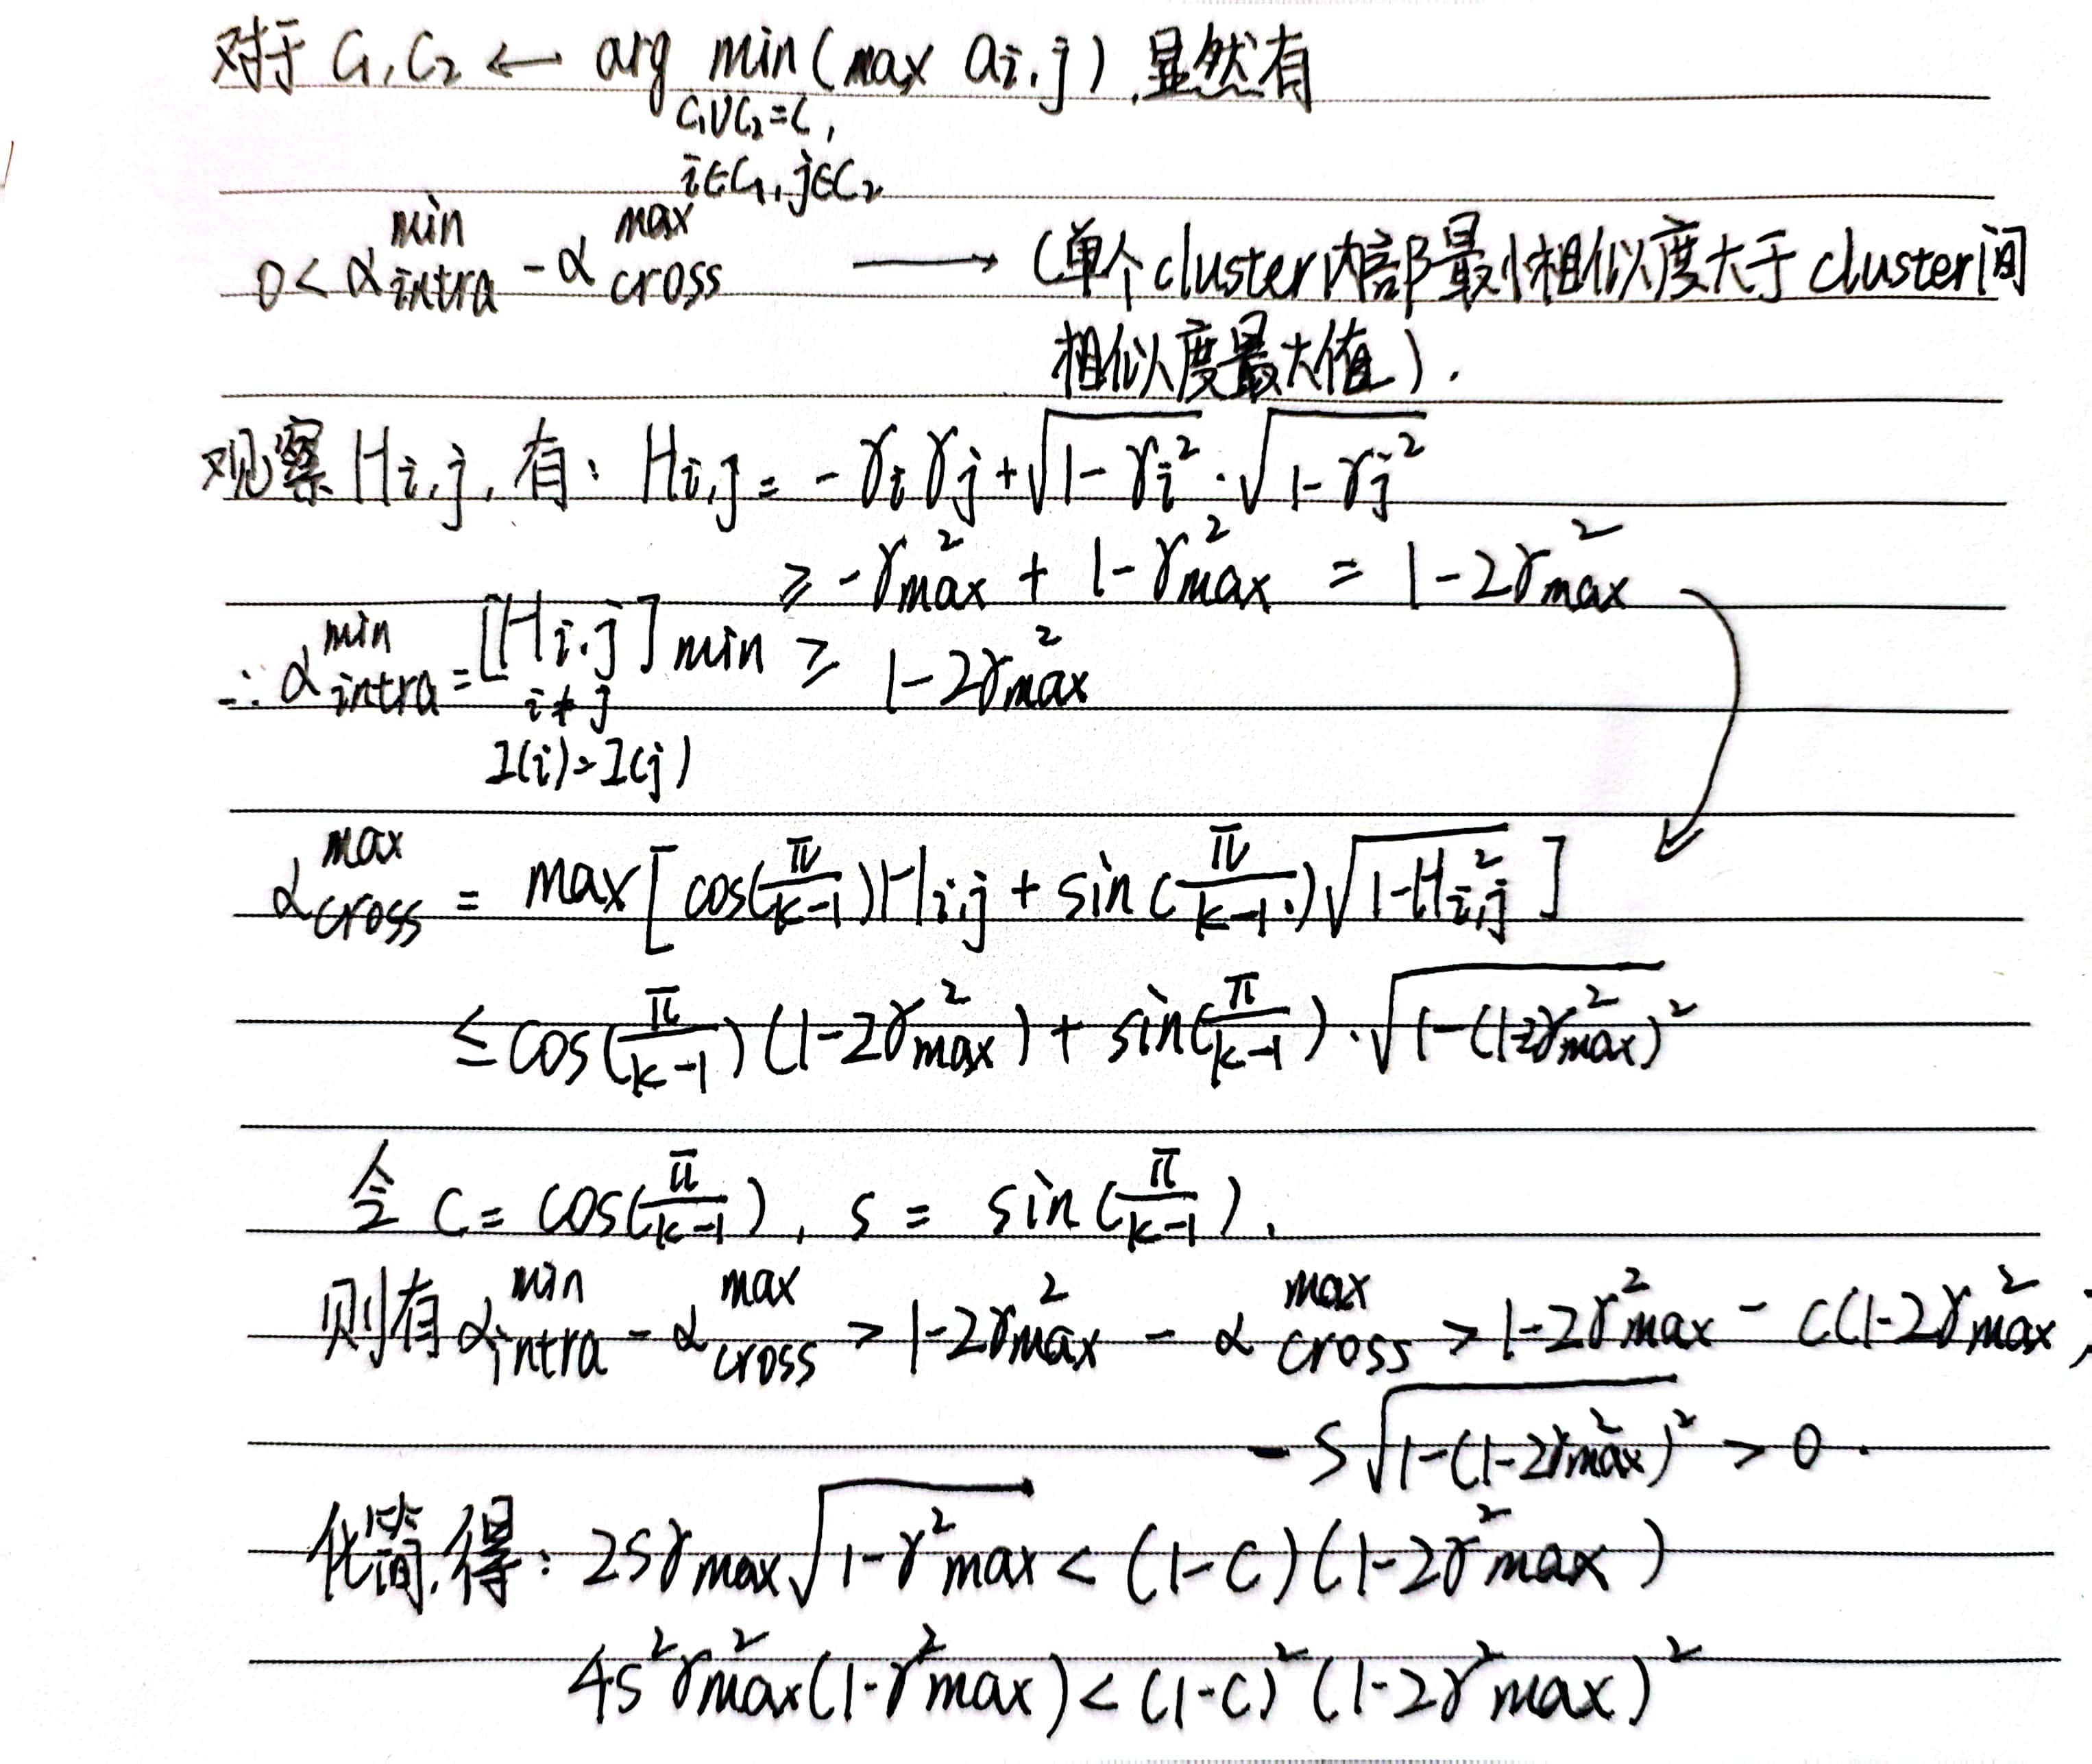 对于 C₁,C₂ ← arg min(max aᵢ,ⱼ),显然有
C₁∪C₂=C,
i∈C₁,j∈C₂
0 < α_intra^min - α_cross^max ⟶ (单个cluster内部最小相似度大于cluster间
相似度最大值).
观察 Hᵢ,ⱼ, 有: Hᵢ,ⱼ = -γᵢγⱼ + √(1-γᵢ²)·√(1-γⱼ²)
≥ -γ_max² + 1-γ_max² = 1-2γ_max²
∴ α_intra^min = [Hᵢ,ⱼ]min ≥ 1-2γ_max²
i≠j
I(i)=I(j)
α_cross^max = max[cos(π/(k-1))Hᵢ,ⱼ + sin(π/(k-1))√(1-Hᵢ,ⱼ²)]
≤ cos(π/(k-1))(1-2γ_max²) + sin(π/(k-1))·√(1-(1-2γ_max²)²)
令 c = cos(π/(k-1)), s = sin(π/(k-1)).
则有 α_intra^min - α_cross^max > 1-2γ_max² - α_cross^max > 1-2γ_max² - c(1-2γ_max²)
- s√(1-(1-2γ_max²)²) > 0.
化简,得: 2sγ_max√(1-γ_max²) < (1-c)(1-2γ_max²)
4s²γ_max²(1-γ_max²) < (1-c)²(1-2γ_max²)²